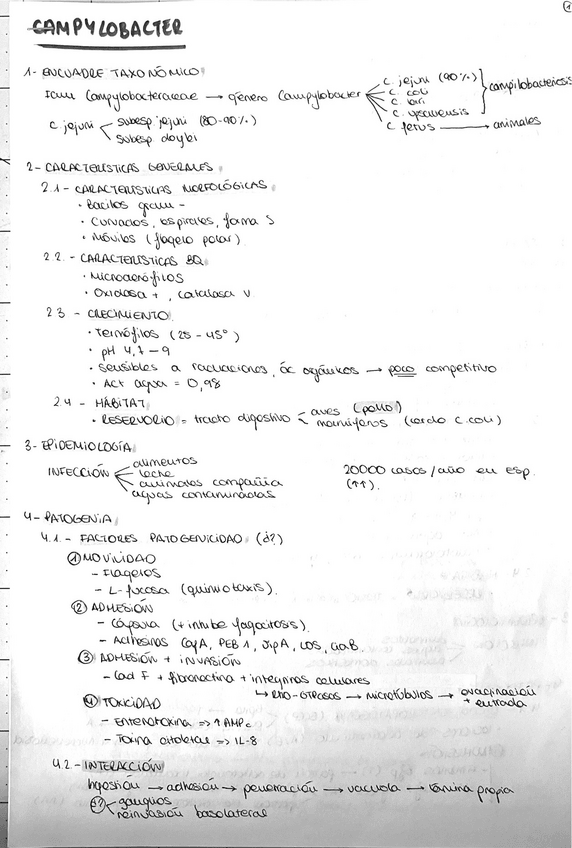 1
CAMPYLOBACTER
1- ENCUADRE TAXONÓMICO
Fam Campylobacteraceae → género Campylobacter
C. jejuni (90%)
C. coli
C. lari
C. upsaliensis
campilobacteriosis
C fetus → animales
C jejuni
subesp jejuni (80-90%)
subesp doylei
2- CARACTERÍSTICAS GENERALES
2.1- CARACTERÍSTICAS MORFOLÓGICAS
· Bacilos gram -
· Curvados, espirales, forma S
· Móviles (flagelo polar)
2.2.- CARACTERÍSTICAS BQ
· Microaerófilos
· Oxidasa +, catalasa V
2.3- CRECIMIENTO
· Termófilos (25-45°)
· pH 4,7-9
· Sensibles a radiaciones, ác orgánicos → poco competitivo
· Act agua = 0,98
2.4 - HÁBITAT
· RESERVORIO = tracto digestivo
aves (pollo)
mamíferos (cerdo C. coli)
3- EPIDEMIOLOGÍA
INFECCIÓN
alimentos
leche
animales compañía
aguas contaminadas
20000 casos/año en Esp.
(↑↑).
4- PATOGENIA
4.1.- FACTORES PATOGENICIDAD (¿?)
① MOVILIDAD
- Flagelos
- L-fucosa (quimiotaxis).
② ADHESIÓN
- Cápsula (+ inhibe fagocitosis).
- Adhesinas CapA, PEB1, JlpA, LOS,
③ ADHESIÓN + INVASIÓN
- Cad F + fibronectina + integrinas celulares
↳ RHO-GTPasas → microtúbulos → invaginación + entrada
④ TOXICIDAD
- Enterotoxina => ↑ AMPc
- Toxina citoletal => IL-8
4.2- INTERACCIÓN
Ingestión → adhesión → penetración → vacuola → lámina propia
¿?
ganglios
reinvasión basolateral